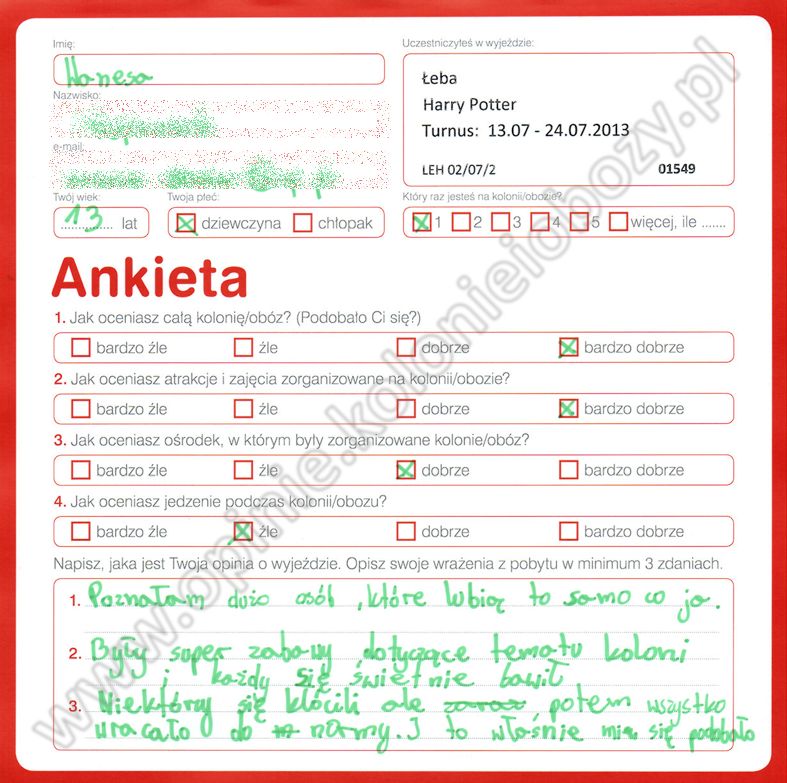 Imię:
Uczestniczyłeś w wyjeździe:
Wanesa
Łeba
Harry Potter
Turnus: 13.07 - 24.07.2013
LEH 02/07/2 01549
Nazwisko:
e-mail:
Twój wiek:
13 lat
Twoja płeć:
dziewczyna chłopak
Który raz jesteś na kolonii/obozie?
1 2 3 4 5 więcej, ile .......
Ankieta
1. Jak oceniasz całą kolonię/obóz? (Podobało Ci się?)
bardzo źle źle dobrze bardzo dobrze
2. Jak oceniasz atrakcje i zajęcia zorganizowane na kolonii/obozie?
bardzo źle źle dobrze bardzo dobrze
3. Jak oceniasz ośrodek, w którym były zorganizowane kolonie/obóz?
bardzo źle źle dobrze bardzo dobrze
4. Jak oceniasz jedzenie podczas kolonii/obozu?
bardzo źle źle dobrze bardzo dobrze
Napisz, jaka jest Twoja opinia o wyjeździe. Opisz swoje wrażenia z pobytu w minimum 3 zdaniach.
1. Poznałam dużo osób , które lubią to samo co ja.
2. Były super zabawy dotyczące tematu koloni
i każdy się świetnie bawił
3. Niektórzy się kłócili ale potem wszystko
wracało do normy. I to właśnie mi się podobało
www.opinie.kolonieiobozy.pl